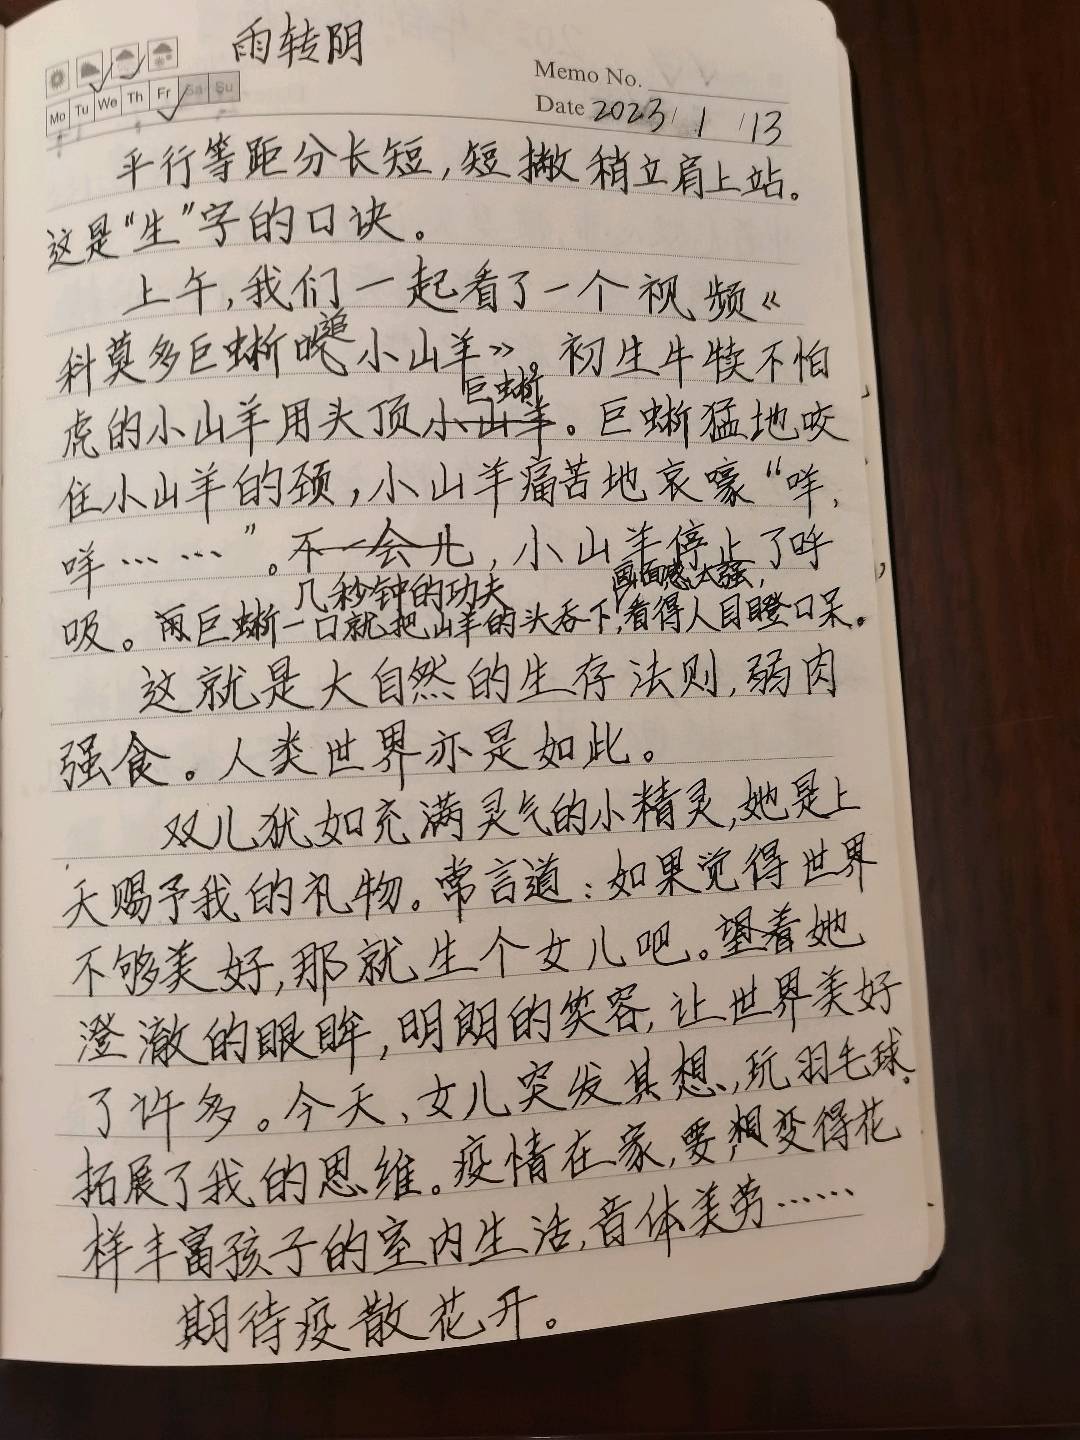 雨转阴
Memo No.
Mo Tu We Th Fr Sa Su
Date 2023/1/13
平行等距分长短,短撇稍立肩上站。
这是“生”字的口诀。
上午,我们一起看了一个视频《
科莫多巨蜥追小山羊》。初生牛犊不怕
巨蜥
虎的小山羊用头顶小山羊。巨蜥猛地咬
住小山羊的颈,小山羊痛苦地哀嚎“咩,
咩……”。不一会儿,小山羊停止了呼
几秒钟的功夫 画面感太强,
吸。而巨蜥一口就把山羊的头吞下,看得人目瞪口呆。
这就是大自然的生存法则,弱肉
强食。人类世界亦是如此。
双儿犹如充满灵气的小精灵,她是上
天赐予我的礼物。常言道:如果觉得世界
不够美好,那就生个女儿吧。望着她
澄澈的眼眸,明朗的笑容,让世界美好
了许多。今天,女儿突发其想,玩羽毛球。
拓展了我的思维。疫情在家,要想变得花
样丰富孩子的室内生活,音体美劳……
期待疫散花开。